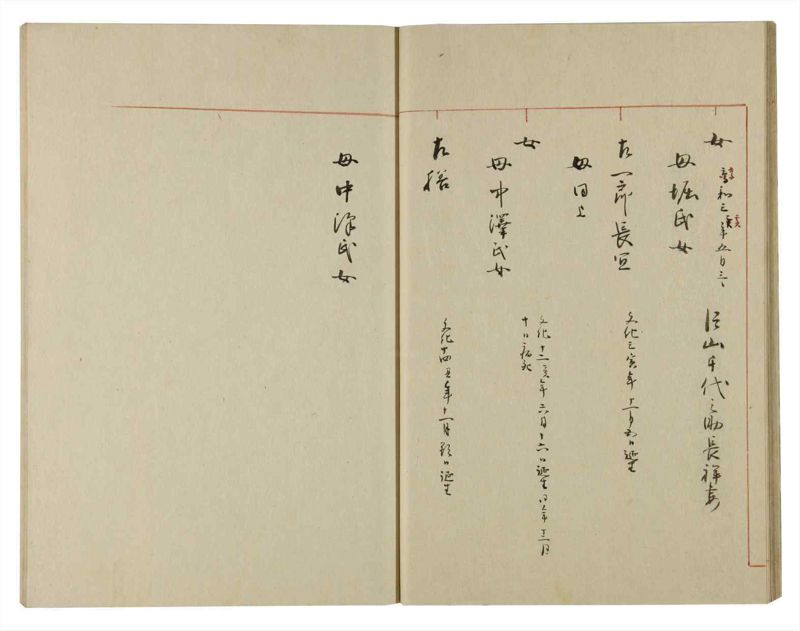 女 享和三亥年五月三日
徳山千代之助長祥妻
母堀氏女
左一郎長亘
文化三寅年十二月五日誕生
母同上
女
文化十二亥年六月十六日誕生同年十二月
十日病死
母中澤氏女
文化十四丑年十一月
日誕生
母中澤氏女